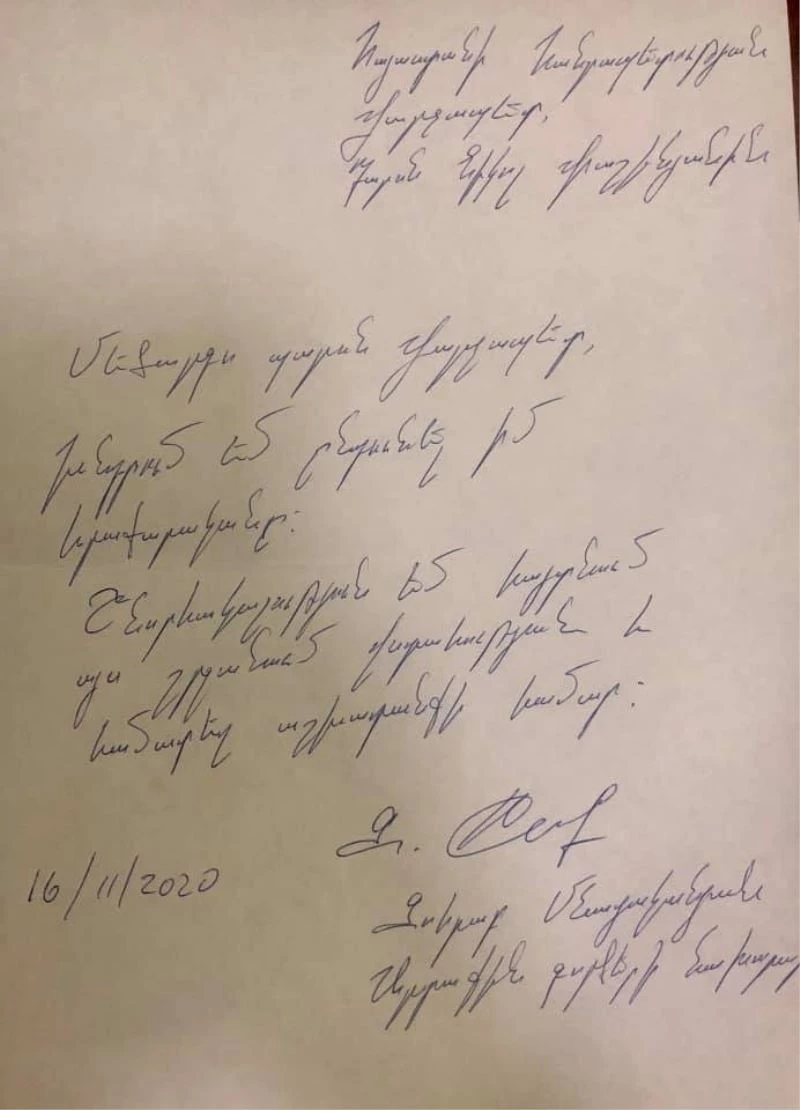 Հայաստանի Հանրապետության
վարչապետ,
Պարոն Նիկոլ Փաշինյանին
Մեծարգո պարոն Վարչապետ,
Խնդրում եմ ընդունել իմ
հրաժարականը:
Շնորհակալություն եմ հայտնում
այս շրջանում վստահության և
համատեղ աշխատանքի համար:
Զ.
16/11/2020
Զոհրաբ Մնացականյան
Արտաքին գործերի նախարար